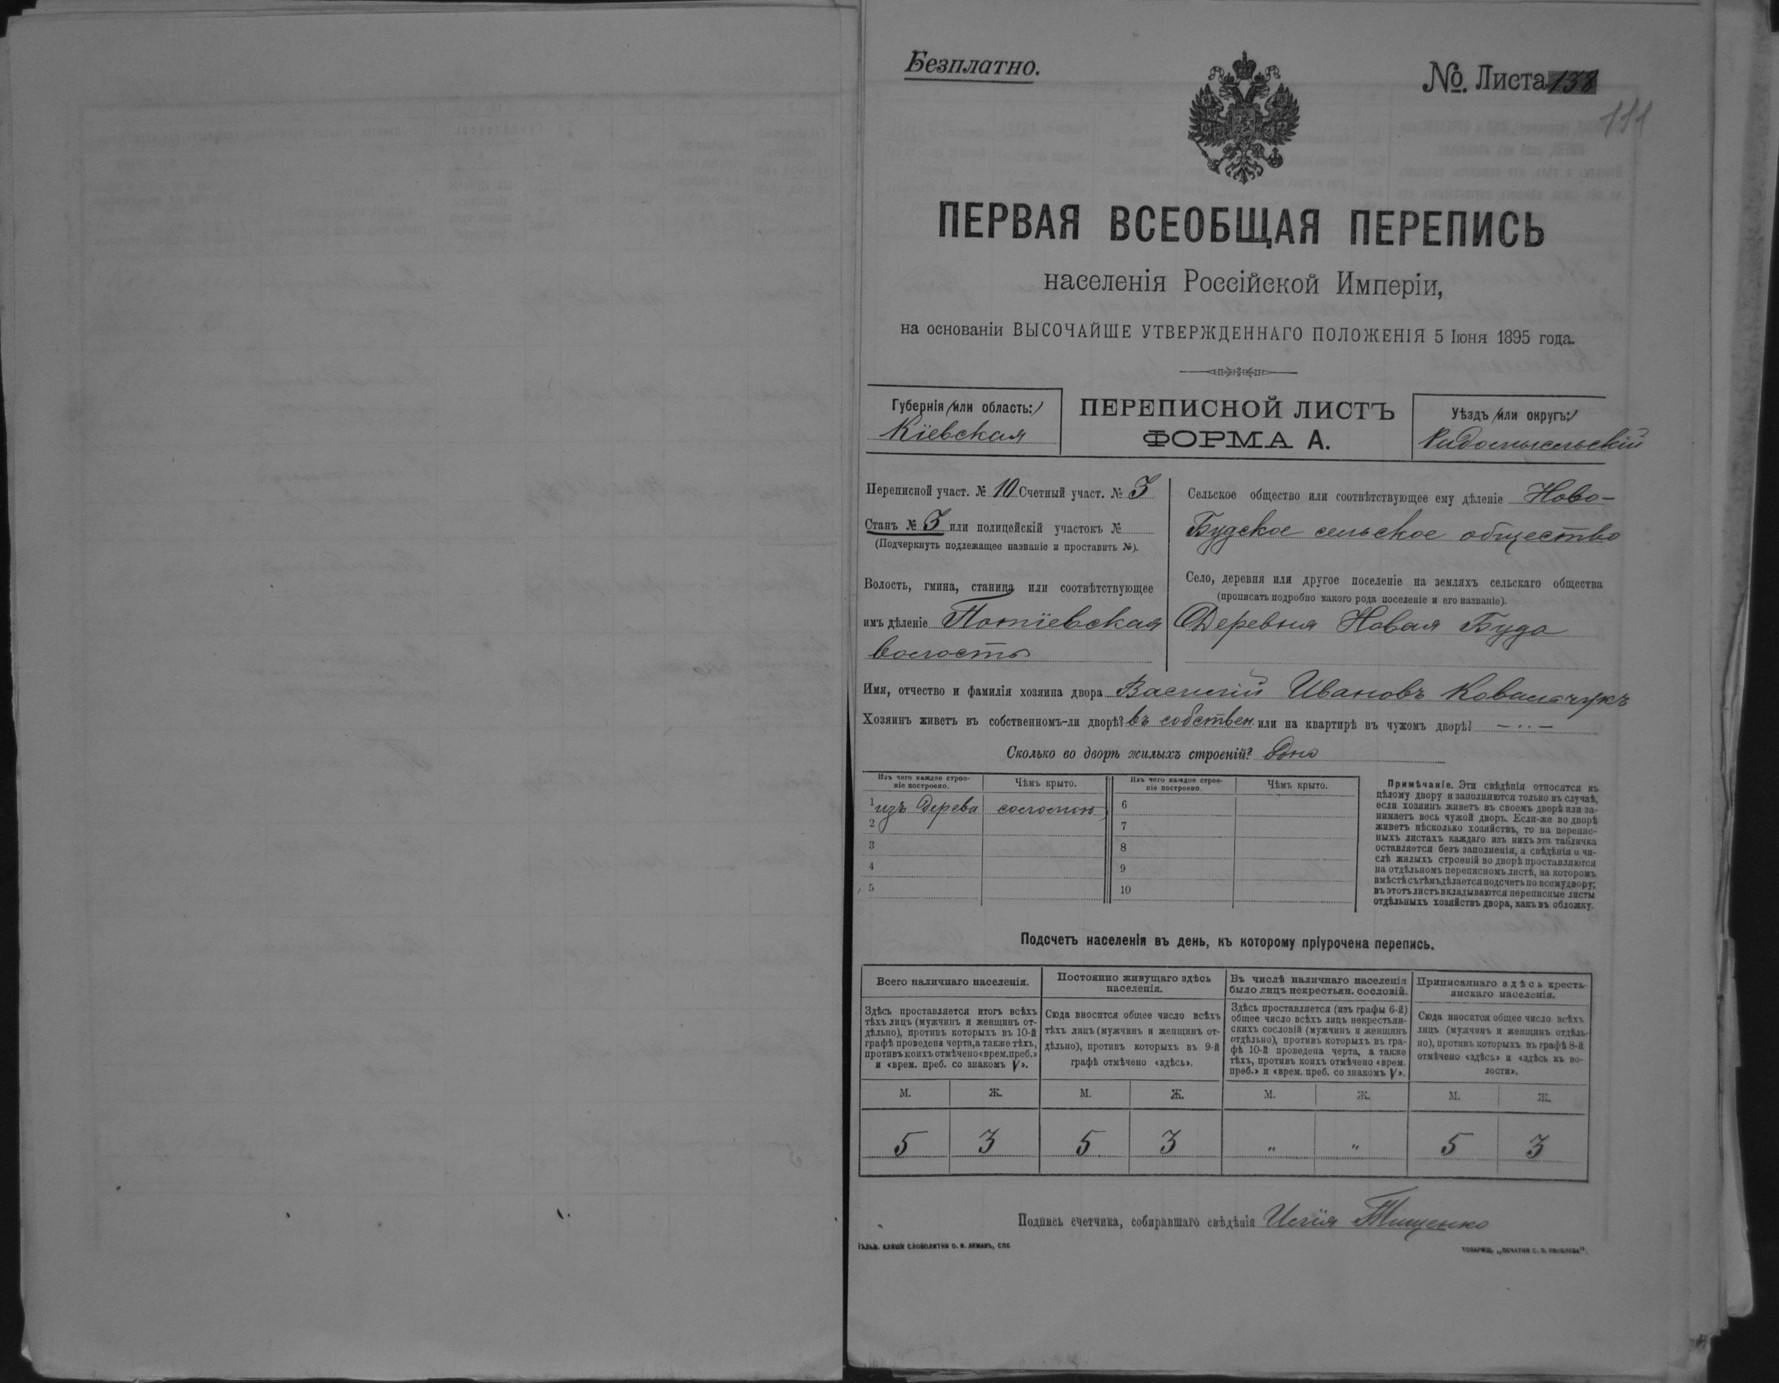 Безплатно.
№. Листа 138
111
ПЕРВАЯ ВСЕОБЩАЯ ПЕРЕПИСЬ
населенія Россійской Имперіи,
на основаніи ВЫСОЧАЙШЕ УТВЕРЖДЕННАГО ПОЛОЖЕНІЯ 5 Іюня 1895 года.
Губернія /или область:/
Кіевская
ПЕРЕПИСНОЙ ЛИСТЪ
ФОРМА А.
Уѣздъ /или округъ:/
Радомысльскій
Переписной участ. № 10 Счетный участ. № 3
Станъ № 3 или полицейскій участокъ №
(Подчеркнуть подлежащее названіе и проставить №).
Волость, гмина, станица или соотвѣтствующее
имъ дѣленіе Потіевская
волость
Сельское общество или соотвѣтствующее ему дѣленіе Ново-
Будское сельское общество
Село, деревня или другое поселеніе на земляхъ сельскаго общества
(прописать подробно какого рода поселеніе и его названіе).
Деревня Новая Буда
Имя, отчество и фамилія хозяина двора Василій Ивановъ Ковальчукъ
Хозяинъ живетъ въ собственномъ-ли дворѣ? въ собствен или на квартирѣ въ чужомъ дворѣ? — .. —
Сколько во дворѣ жилыхъ строеній? Одно
Изъ чего каждое строе-
ніе построено.
Чѣмъ крыто.
Изъ чего каждое строе-
ніе построено.
Чѣмъ крыто.
1 изъ дерева соломою
2
3
4
5
6
7
8
9
10
Примѣчаніе. Эти свѣдѣнія относятся къ
цѣлому двору и заполняются только въ случаѣ,
если хозяинъ живетъ въ своемъ дворѣ или за-
нимаетъ весь чужой дворъ. Если-же во дворѣ
живетъ нѣсколько хозяйствъ, то на перепис-
ныхъ листахъ каждаго изъ нихъ эта табличка
оставляется безъ заполненія, а свѣдѣнія о чи-
слѣ жилыхъ строеній во дворѣ проставляются
на отдѣльномъ переписномъ листѣ, на которомъ
вмѣстѣ съ тѣмъ дѣлается подсчетъ по всему двору;
въ этотъ листъ вкладываются переписные листы
отдѣльныхъ хозяйствъ двора, какъ въ обложку.
Подсчетъ населенія въ день, къ которому пріурочена перепись.
Всего наличнаго населенія.
Здѣсь проставляется итогъ всѣхъ
тѣхъ лицъ (мужчинъ и женщинъ от-
дѣльно), противъ которыхъ въ 10-й
графѣ проведена черта, а также тѣхъ,
противъ коихъ отмѣчено «врем. преб.»
и «врем. преб. со знакомъ V».
М. Ж.
5 3
Постоянно живущаго здѣсь
населенія.
Сюда вносится общее число всѣхъ
тѣхъ лицъ (мужчинъ и женщинъ от-
дѣльно), противъ которыхъ въ 9-й
графѣ отмѣчено «здѣсь».
М. Ж.
5 3
Въ числѣ наличнаго населенія
было лицъ некрестьян. сословій.
Здѣсь проставляется (изъ графы 6-й)
общее число всѣхъ лицъ некрестьян-
скихъ сословій (мужчинъ и женщинъ
отдѣльно), противъ которыхъ въ гра-
фѣ 10-й проведена черта, а также
тѣхъ, противъ коихъ отмѣчено «врем.
преб.» и «врем. преб. со знакомъ V».
М. Ж.
„ „
Приписаннаго здѣсь кресть-
янскаго населенія.
Сюда вносится общее число всѣхъ
лицъ (мужчинъ и женщинъ отдѣль-
но), противъ которыхъ въ графѣ 8-й
отмѣчено «здѣсь» и «здѣсь къ во-
лости».
М. Ж.
5 3
Подпись счетчика, собиравшаго свѣдѣнія Илія Тищенко
ГАЛЬВ. КЛИШЕ СЛОВОЛИТНИ О. И. ЛЕМАНЪ, СПБ
ТОВАРИЩ. „ПЕЧАТНЯ С. П. ЯКОВЛЕВА".